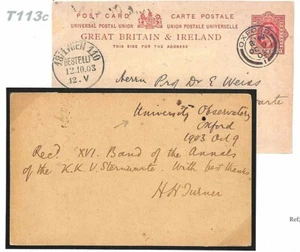 T113c
POST CARD
UNION POSTALE UNIVERSELLE
GREAT BRITAIN & IRELAND
THIS SIDE FOR THE ADDRESS
OXFORD
18/1 WIEN 110
BESTELLT
12.10.03
12.V
Herrn Prof Dr E Weiss
University Observatory
Oxford
1903 Oct 9
Recd XVI. Band of the Annals
of the K.K.V. Sternwarte With best thanks
H H Turner
Ref.